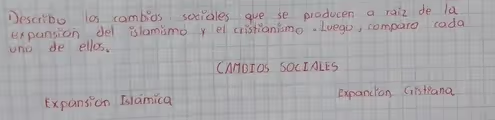 1) Describo los cambios sociales que se producen a raiz de la
expansion del islamismo y el cristianismo. Luego, comparo cada
uno de ellos.
CAMBIOS SOCIALES
Expansion Islámica
Expancion Cristiana